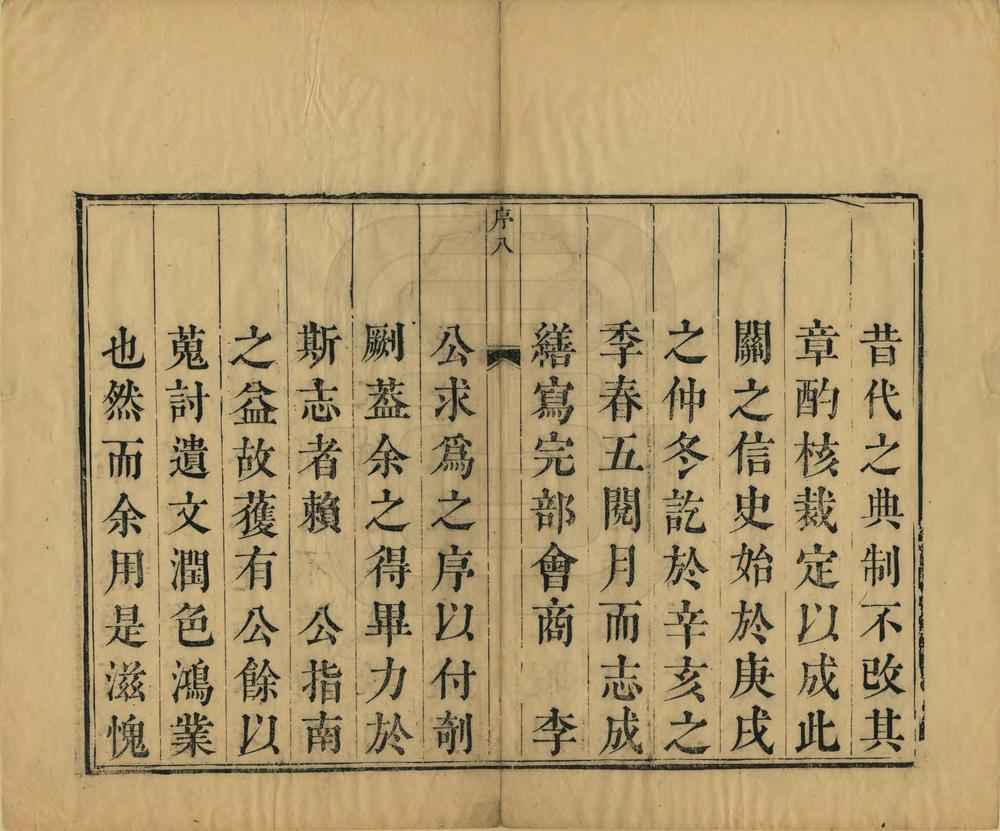 昔代之典制不改其
章酌核裁定以成此
關之信史始於庚戌
之仲冬訖於辛亥之
季春五閱月而志成
繕寫完部會商　李
序八
公求爲之序以付剞
劂葢余之得畢力於
斯志者賴　公指南
之益故獲有公餘以
蒐討遺文潤色鴻業
也然而余用是滋愧